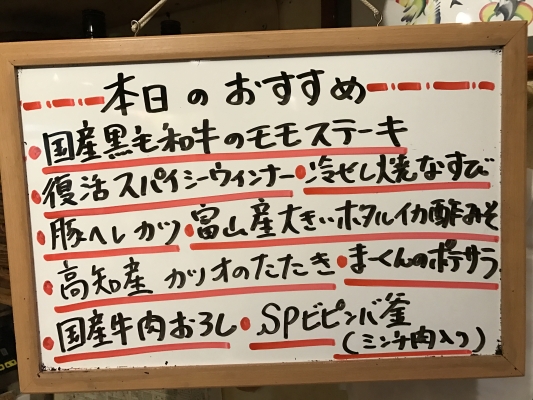 本日のおすすめ
・国産黒毛和牛のモモステーキ
・復活スパイシーウィンナー・冷やし焼なすび
・豚ヘレカツ・富山産大きいホタルイカ酢みそ
・高知産 カツオのたたき・まーくんのポテサラ
・国産牛肉おろし・SPビビンバ釜
(ミンチ肉入り)